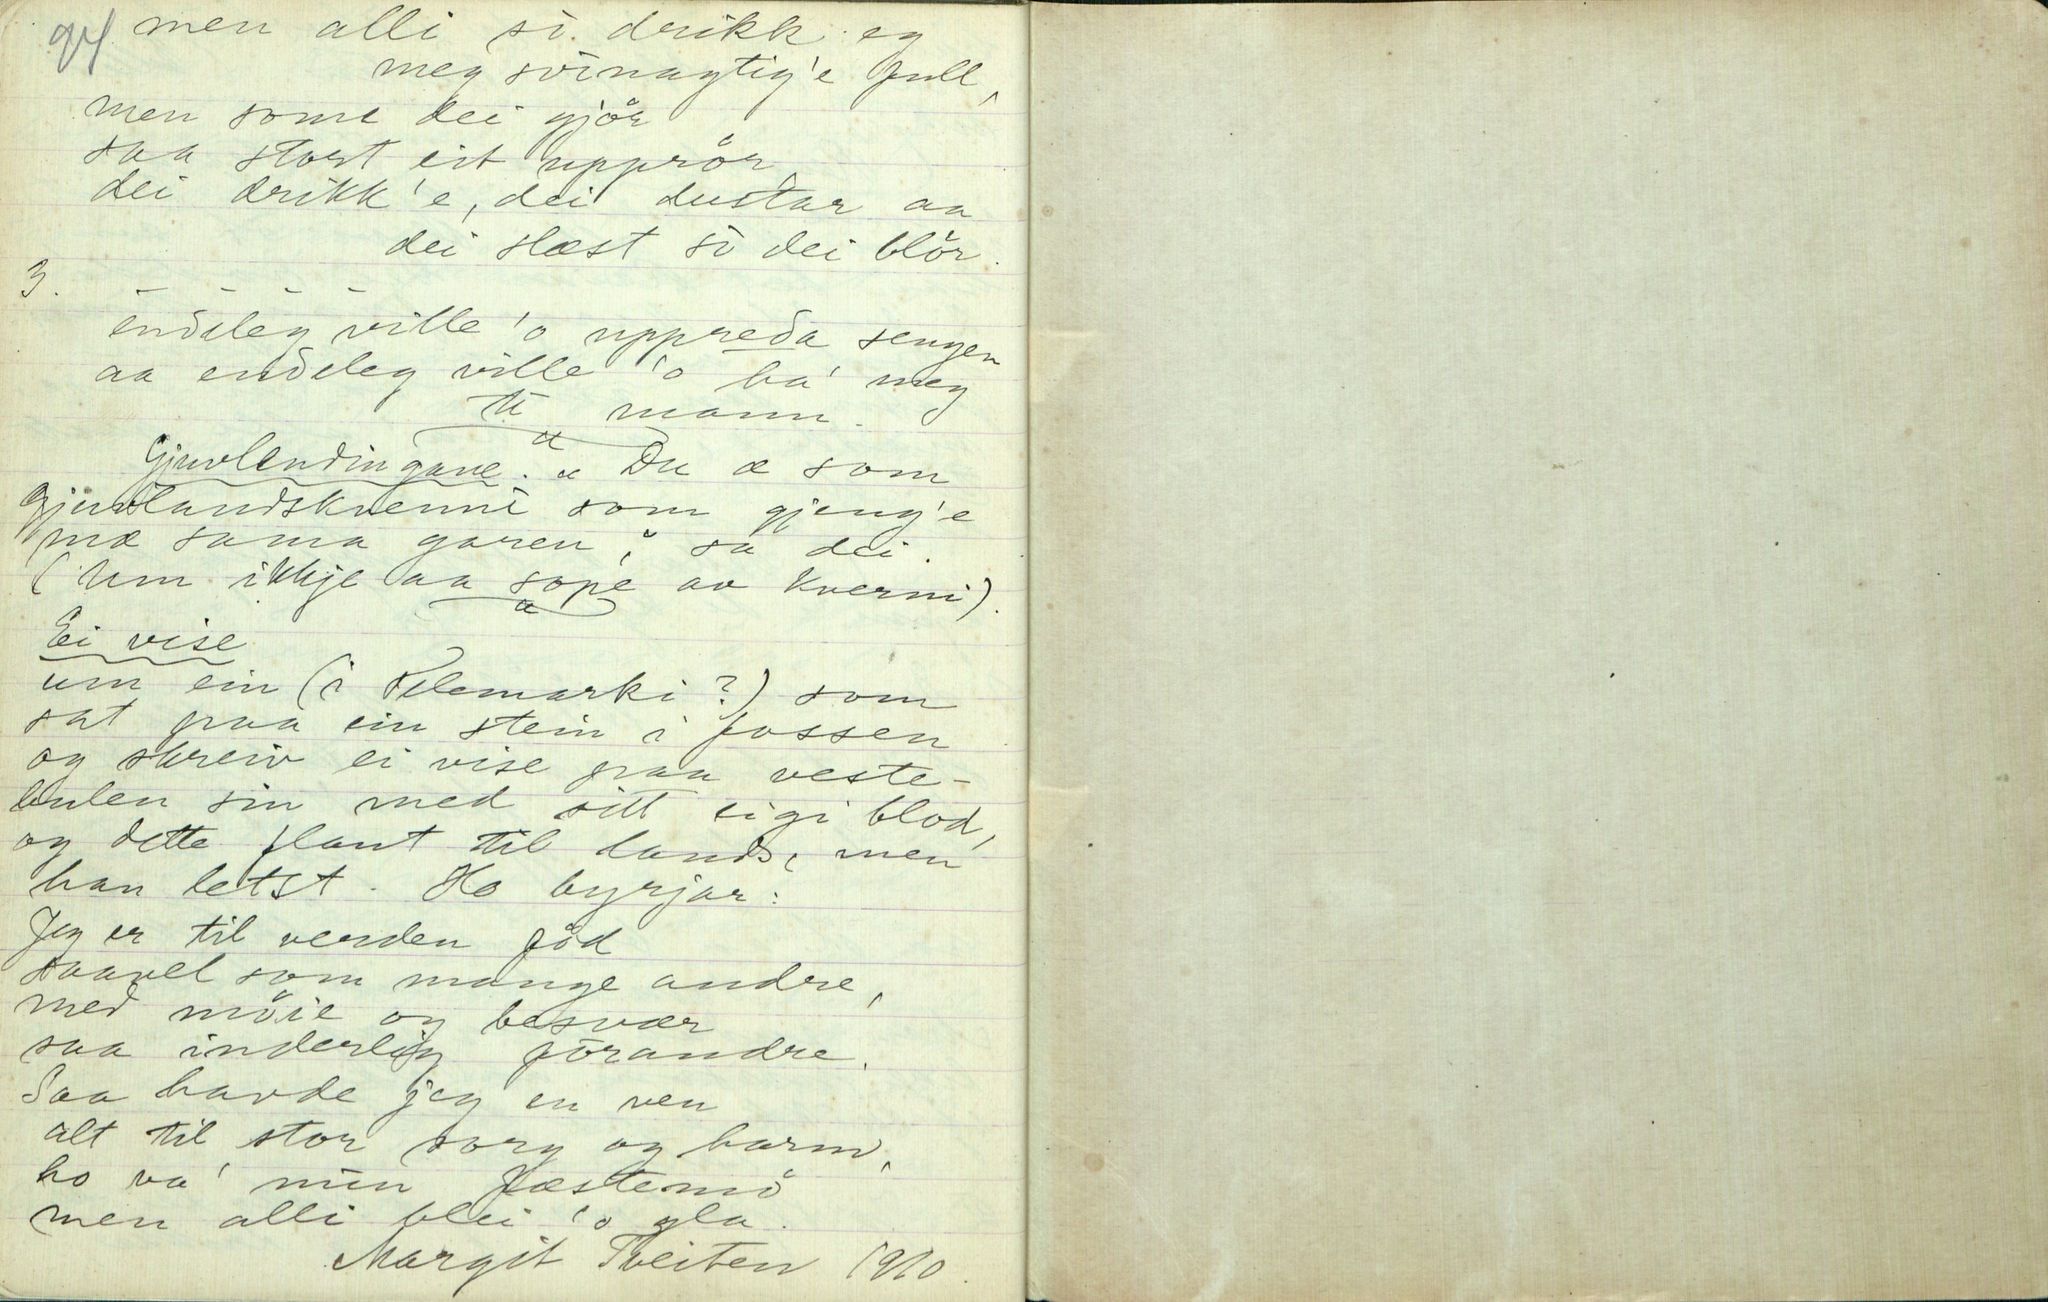 94 men alli si drikk eg
meg svinagtig'e full,
men some dei gjör
saa stort eit upprör,
dei drikk'e, dei dustar aa
dei slæst si dei blör.
3. – – – –
endeleg ville 'o uppreda sengen
aa endeleg ville 'o ha' meg
ti mann.
Gjuvlendingane. „Du æ som
gjuvlandskvenni som gjeng'e
mæ sama garen", sa dei.
(Um ikkje aa sope av kverni).
Ei vise
um ein (i Telemarki?) som
sat paa ein stein i fossen
og skreiv ei vise paa veste-
luten sin med sitt eigi blod,
og dette flaut til lands, men
han letst. Ho byrjar:
Jeg er til verden föd
saavel som mange andre,
med möie og besvær
saa inderlig förandre.
Saa havde jeg en ven
alt til stor sorg og harm,
ho va' min fæstemö
men alli blei 'o gla.
Margit Tveiten 1910.